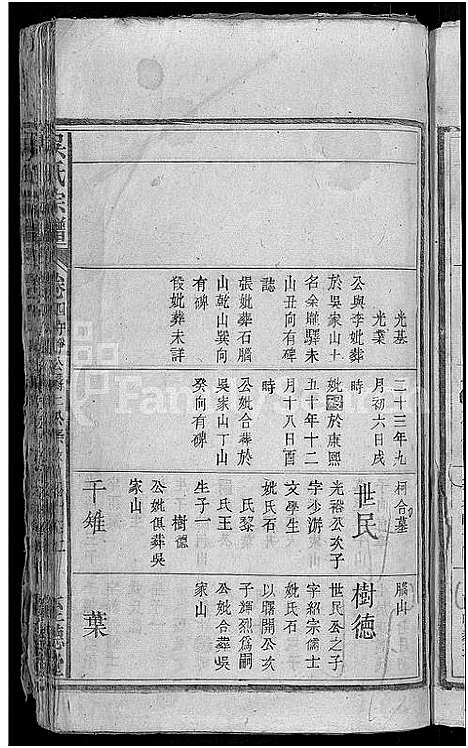 吳氏宗譜
卷四
光基
光業
公與李妣葬
於吳家山土
名余壠驛未
山丑向有碑
誌
張妣葬石腦
山乾山巽向
有碑
段妣葬未詳
二十三年九
月初六日戌
時
妣歿於康熙
五十年十二
月十八日酉
時
公妣合葬於
吳家山丁山
癸向有碑
柯合墓
世民
光裕公次子
字少游
文學生
妣氏石
氏黎
氏王
生子一
樹德
公妣俱葬吳
家山
千雉
腦山
樹德
世民公之子
字紹宗儒士
妣氏石
以曙開公次
子輝烈爲嗣
公妣合葬吳
家山
葉